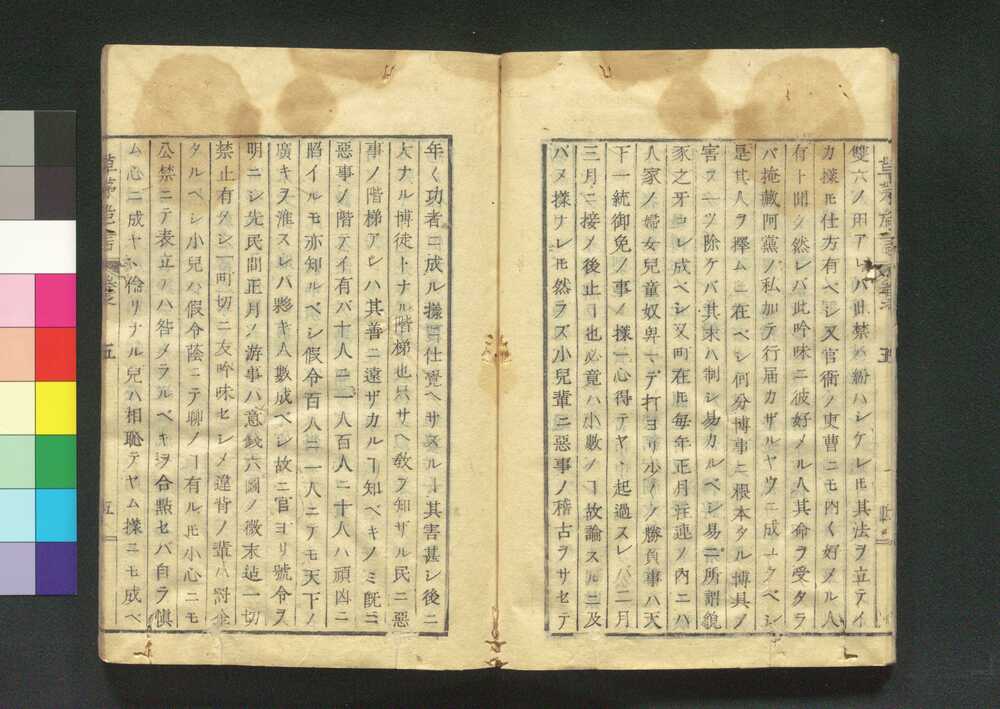 雙六ノ用アレバ世禁メ紛ハシケレ𪜈其法ヲ立テイ
カ樣𪜈仕方有ベシ又官衙ノ吏曹ニモ内〱好メル人
有ト聞ク然レバ此吟味ニ彼好メル人其命ヲ受タラ
バ掩藏阿黨ノ私加テ行届カザルヤウニ成ユクベシ
是其人ヲ擇ムニ在ベシ何分博事ニ根本タル博具ノ
害ヲ一ツ除ケバ其末ハ制シ易カルベシ易ニ所謂豶
豕之牙コレ成ベシ又町在𪜈毎年正月注連ノ内ニハ
人家ノ婦女兒童奴卑マデ打ヨリ小〱ノ勝負事ハ天
下一統御免ノ事ノ樣ニ心得テヤヽ起過スレバ二月
三月ニ接メ後止ヿ也必竟ハ小數ノヿ故論スルニ及
バヌ樣ナレ𪜈然ラズ小兒輩ニ惡事ノ稽古ラサセテ
年〱功者ニ成ル樣ニ仕覺ヘサスルヿ其害甚シ後ニ
大ナル博徒トナル階梯也只サヘ敎ヲ知ザル民ニ惡
事ノ階梯アレハ其善ニ遠ザカルヿ知ベキノミ既ニ
惡事ノ階テイ有バ十人ニ一人百人ニ十人ハ頑凶ニ
陷イルモ亦知ルベシ假令百人ニ一人ニテモ天下ノ
廣キヲ准スレバ夥キ人數成ベシ故ニ官ヨリ號令ヲ
明ニシ先民間正月ノ游事ハ意錢六圖ノ微末迠一切
禁止有タシ一町切ニ友吟味セシメ違背ノ輩ハ罸金
タルベシ小兒ハ假令蔭ニテ聊ノヿ有ル𪜈小心ニモ
公禁ニテ表立テハ咎メラルベキヲ合點セバ自ラ愼
ム心ニ成ヤ不倫リナル兒ハ相恥テヤム樣ニモ成ベ
五